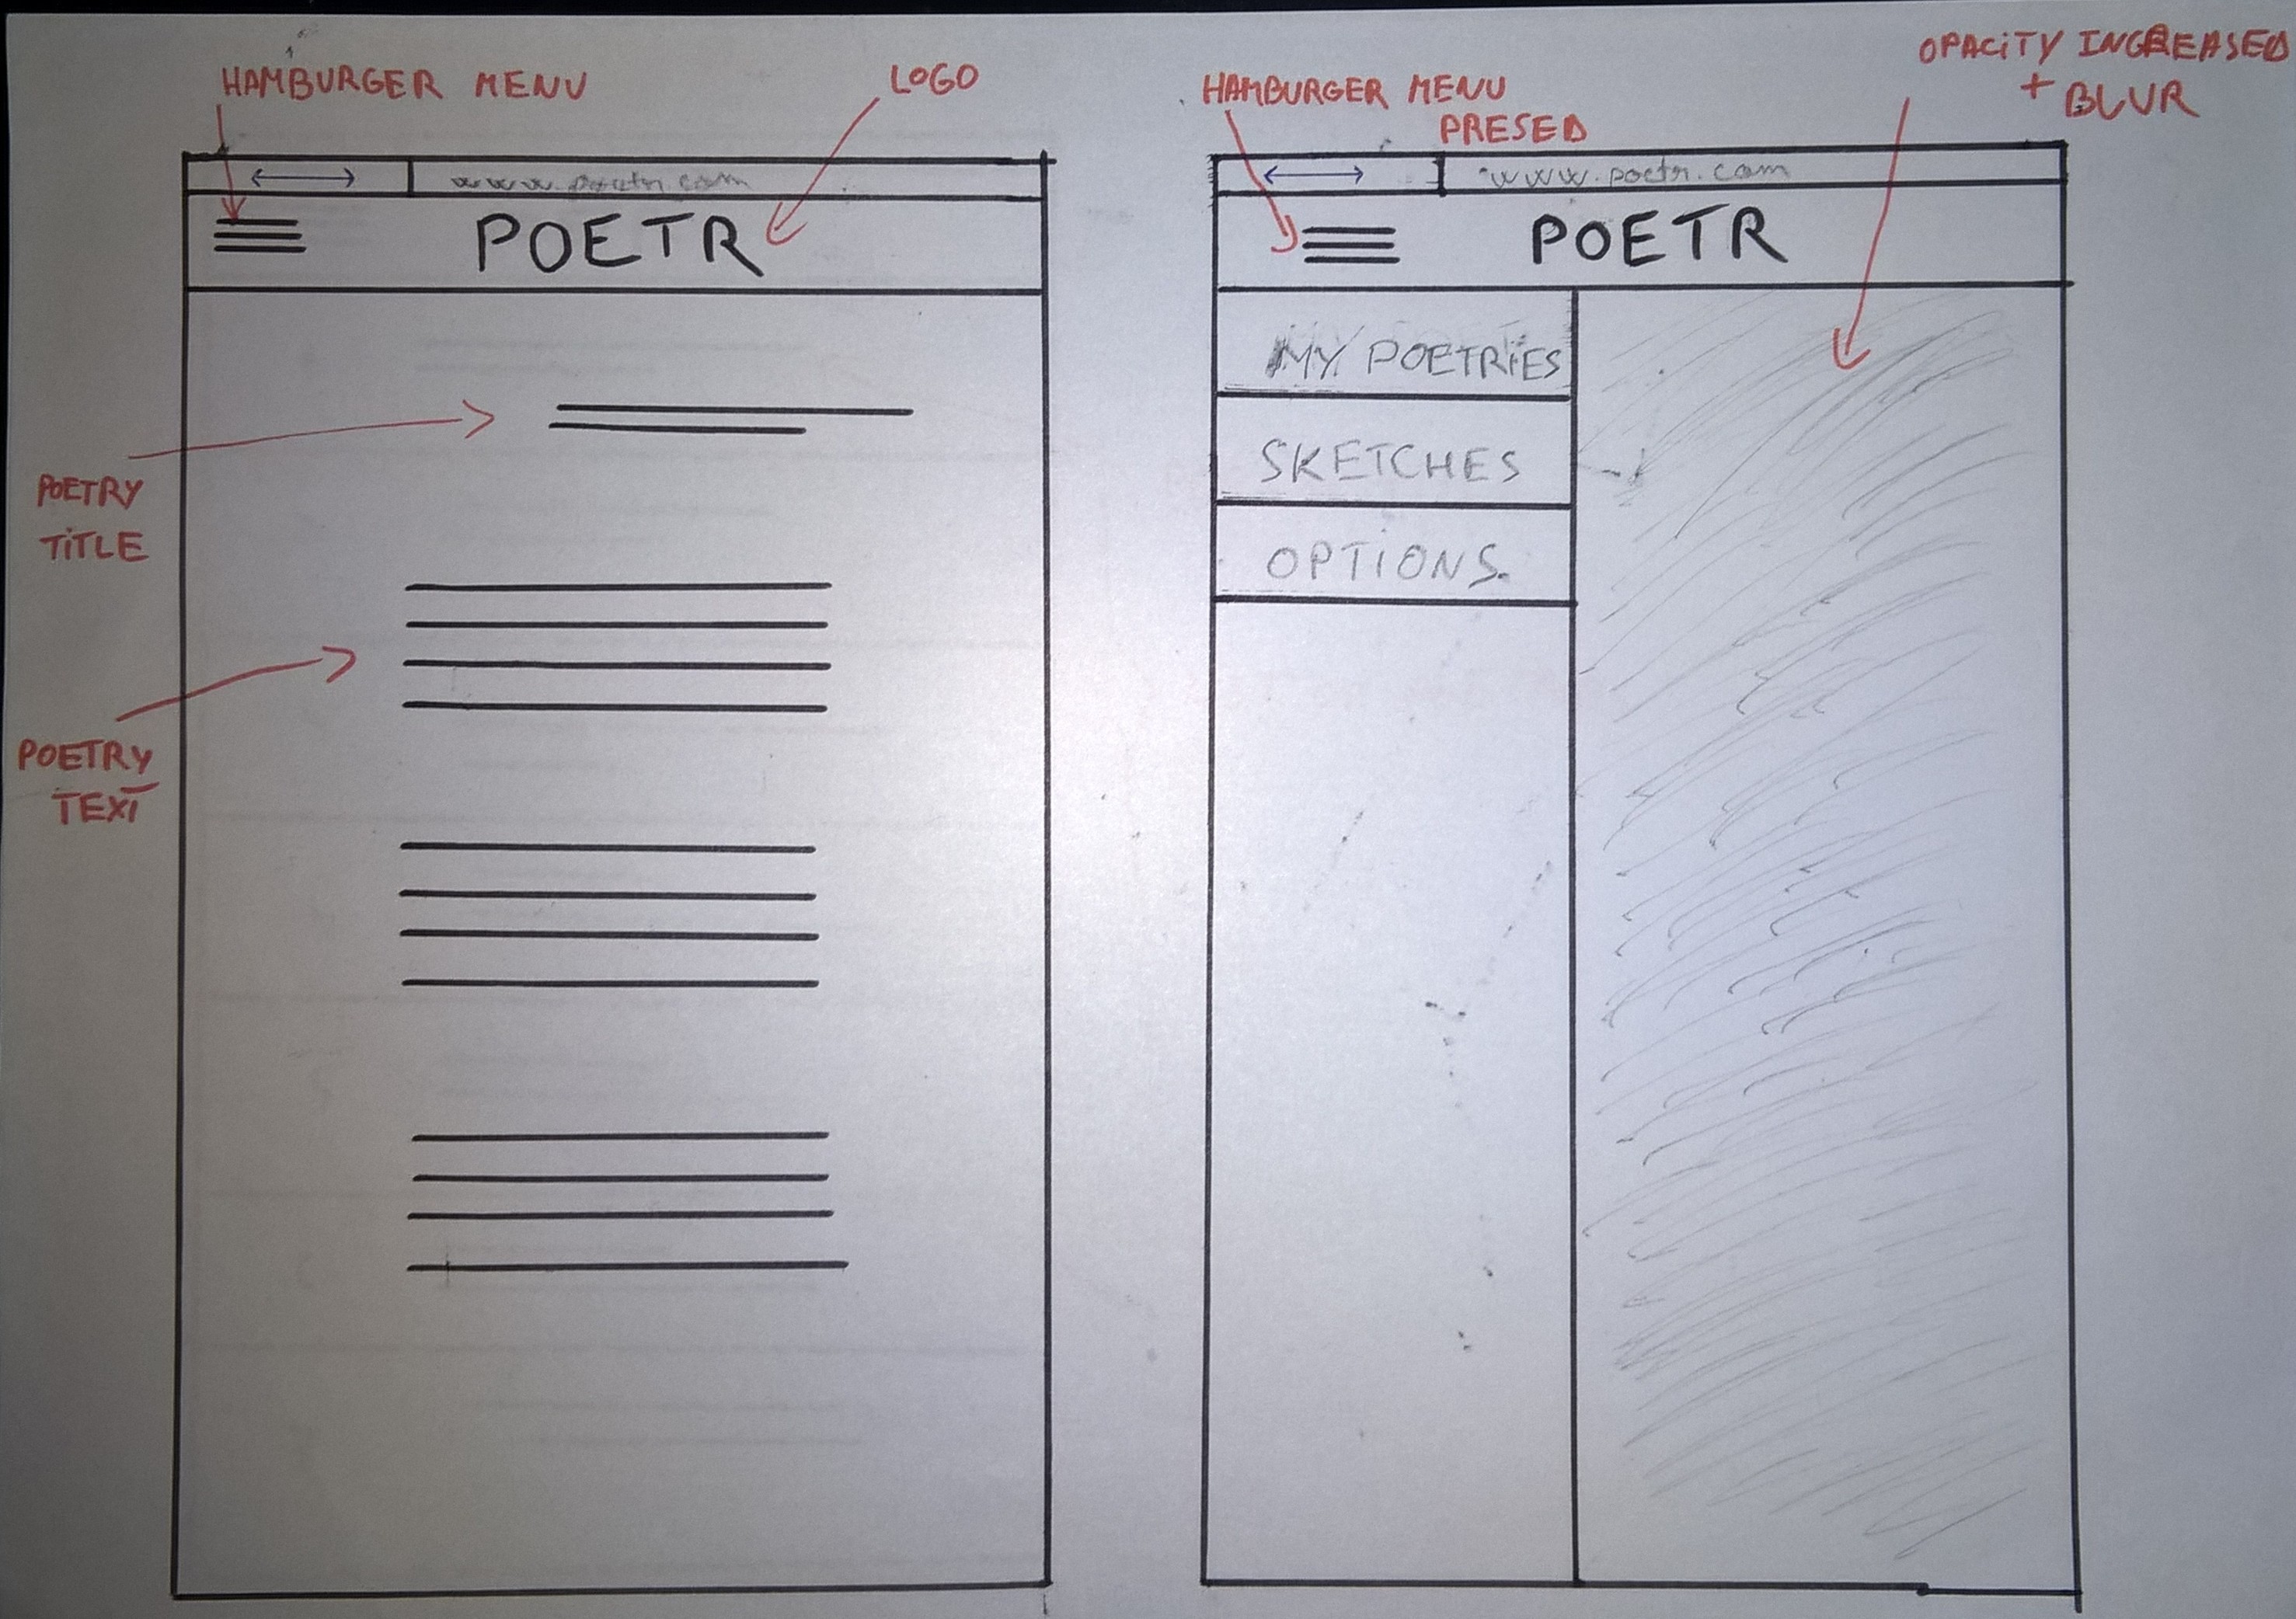 HAMBURGER MENU
LOGO
www.poetr.com
POETR
POETRY
TITLE
POETRY
TEXT
HAMBURGER MENU
PRESED
OPACITY INCREASED
+ BLUR
www.poetr.com
POETR
MY POETRIES
SKETCHES
OPTIONS